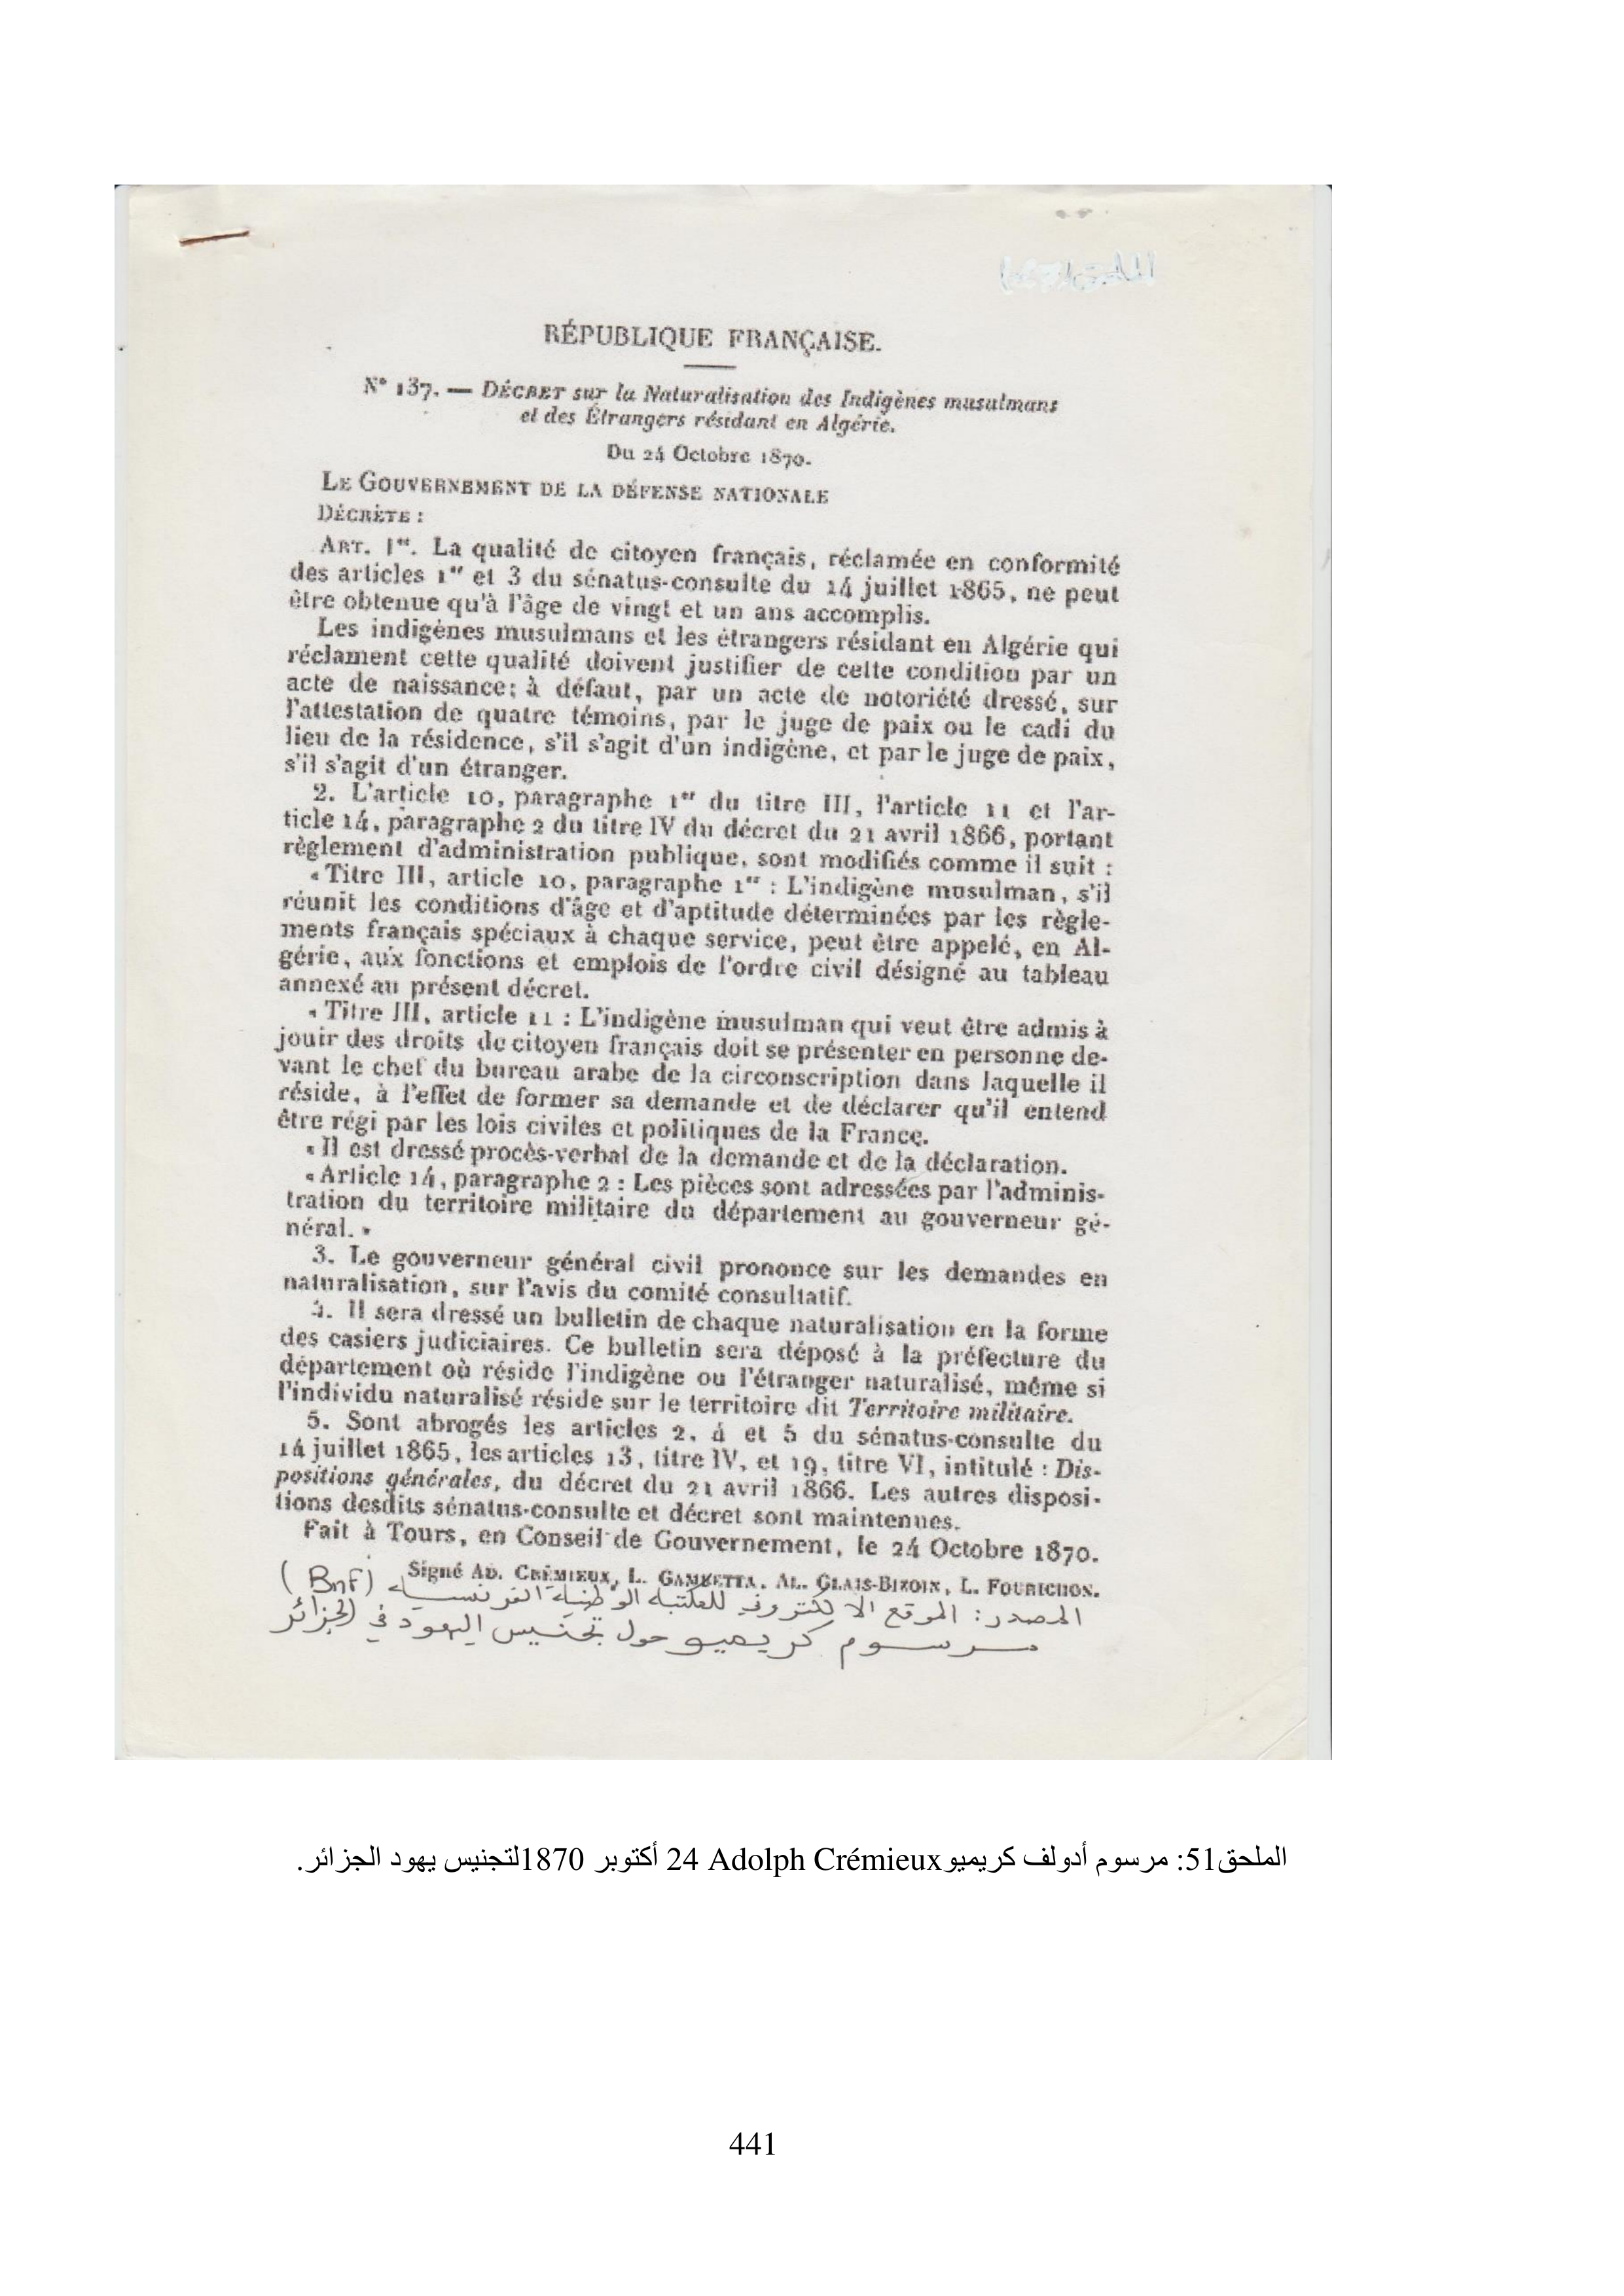 RÉPUBLIQUE FRANÇAISE.
N° 137. — DÉCRET sur la Naturalisation des Indigènes musulmans
et des Étrangers résidant en Algérie.
Du 24 Octobre 1870.
LE GOUVERNEMENT DE LA DÉFENSE NATIONALE
DÉCRÈTE :
ART. 1er. La qualité de citoyen français, réclamée en conformité
des articles 1er et 3 du sénatus-consulte du 14 juillet 1865, ne peut
être obtenue qu'à l'âge de vingt et un ans accomplis.
Les indigènes musulmans et les étrangers résidant en Algérie qui
réclament cette qualité doivent justifier de cette condition par un
acte de naissance; à défaut, par un acte de notoriété dressé, sur
l'attestation de quatre témoins, par le juge de paix ou le cadi du
lieu de la résidence, s'il s'agit d'un indigène, et par le juge de paix,
s'il s'agit d'un étranger.
2. L'article 10, paragraphe 1er du titre III, l'article 11 et l'ar-
ticle 14, paragraphe 2 du titre IV du décret du 21 avril 1866, portant
règlement d'administration publique, sont modifiés comme il suit :
« Titre III, article 10, paragraphe 1er : L'indigène musulman, s'il
réunit les conditions d'âge et d'aptitude déterminées par les règle-
ments français spéciaux à chaque service, peut être appelé, en Al-
gérie, aux fonctions et emplois de l'ordre civil désigné au tableau
annexé au présent décret.
« Titre III, article 11 : L'indigène musulman qui veut être admis à
jouir des droits de citoyen français doit se présenter en personne de-
vant le chef du bureau arabe de la circonscription dans laquelle il
réside, à l'effet de former sa demande et de déclarer qu'il entend
être régi par les lois civiles et politiques de la France.
« Il est dressé procès-verbal de la demande et de la déclaration.
« Article 14, paragraphe 2 : Les pièces sont adressées par l'adminis-
tration du territoire militaire du département au gouverneur gé-
néral. »
3. Le gouverneur général civil prononce sur les demandes en
naturalisation, sur l'avis du comité consultatif.
4. Il sera dressé un bulletin de chaque naturalisation en la forme
des casiers judiciaires. Ce bulletin sera déposé à la préfecture du
département où réside l'indigène ou l'étranger naturalisé, même si
l'individu naturalisé réside sur le territoire dit Territoire militaire.
5. Sont abrogés les articles 2, 4 et 5 du sénatus-consulte du
14 juillet 1865, les articles 13, titre IV, et 19, titre VI, intitulé : Dis-
positions générales, du décret du 21 avril 1866. Les autres disposi-
tions desdits sénatus-consulte et décret sont maintenues.
Fait à Tours, en Conseil de Gouvernement, le 24 Octobre 1870.
Signé AD. CRÉMIEUX, L. GAMBETTA, AL. GLAIS-BIZOIN, L. FOURICHON.
المصدر: الموقع الالكتروني للمكتبة الوطنية الفرنسية (BnF)
مرسوم كريميو حول تجنيس اليهود في الجزائر
الملحق51: مرسوم أدولف كريميوAdolph Crémieux 24 أكتوبر 1870لتجنيس يهود الجزائر.
441